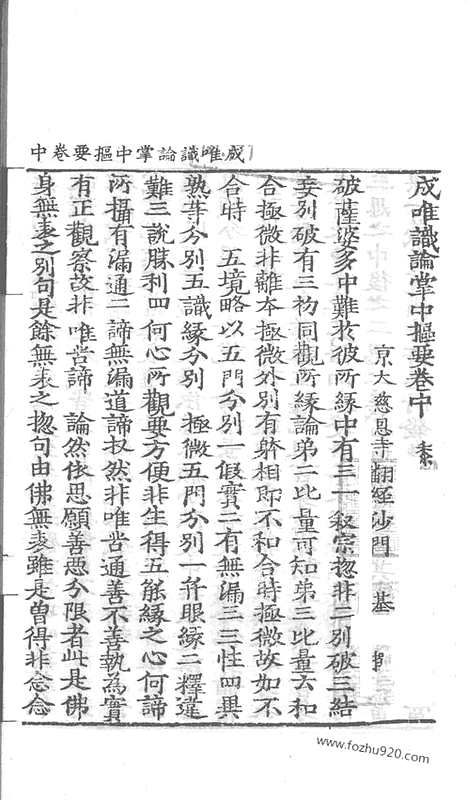 成唯識論掌中樞要卷中
成唯識論掌中樞要卷中 末
京大慈恩寺翻經沙門 基 撰
破薩婆多中難於彼所緣中有三一敘宗揔非二別破三結
妄別破有三初同觀所緣論第二比量可知第三比量六和
合極微非離本極微外別有躰相即不和合時極微故如不
合時 五境略以五門分別一假實二有無漏三三性四異
熟等分別五識緣分別 極微五門分別一幷眼緣二釋違
難三說勝利四何心所觀要方便非生得五能緣之心何諦
所攝有漏通二諦無漏道諦权然非唯苦通善不善執為實
有正觀察故非唯苦諦 論然依思願善惡分限者此是佛
身無表之別句是餘無表之揔句由佛無表雖是曾得非念念
www.fozhu920.com